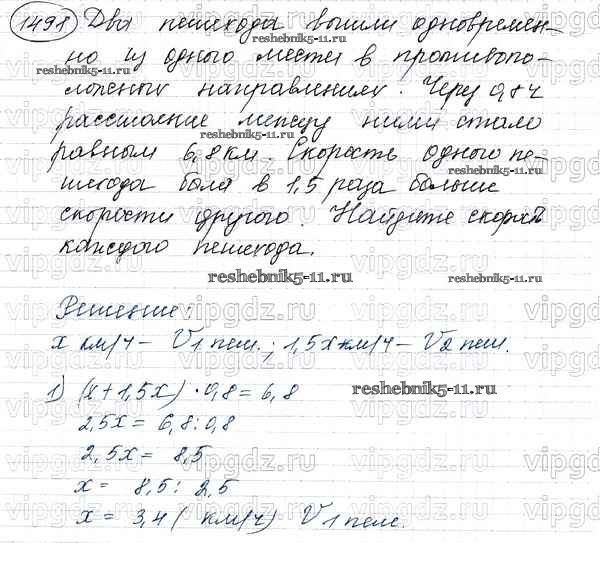 1498 Два пешехода вышли одновремен-
но из одного места в противопо-
ложных направлениях. Через 0,8 ч
расстояние между ними стало
равным 6,8 км. Скорость одного пе-
шехода была в 1,5 раза больше
скорости другого. Найдите скорость
каждого пешехода.
Решение:
x км/ч – V1 пеш.; 1,5x км/ч – V2 пеш.
1) (x + 1,5x) · 0,8 = 6,8
2,5x = 6,8 : 0,8
2,5x = 8,5
x = 8,5 : 2,5
x = 3,4 (км/ч) V1 пеш.
reshebnik5-11.ru
reshebnik5-11.ru
reshebnik5-11.ru
reshebnik5-11.ru
reshebnik5-11.ru
reshebnik5-11.ru
vipgdz.ru